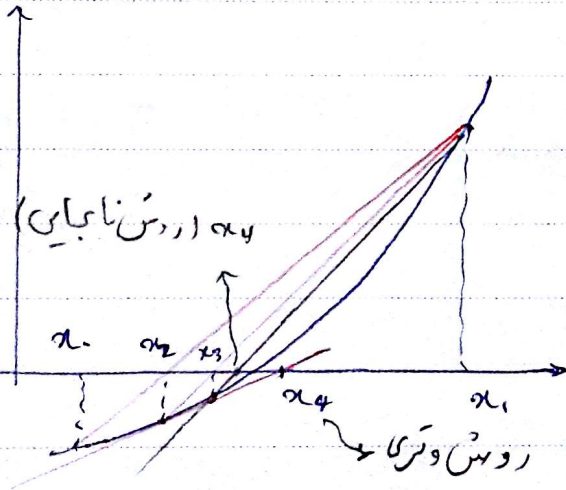 x₄ (روش نابجایی)
x₀ x₂ x₃
x₄ x₁
روش وتری